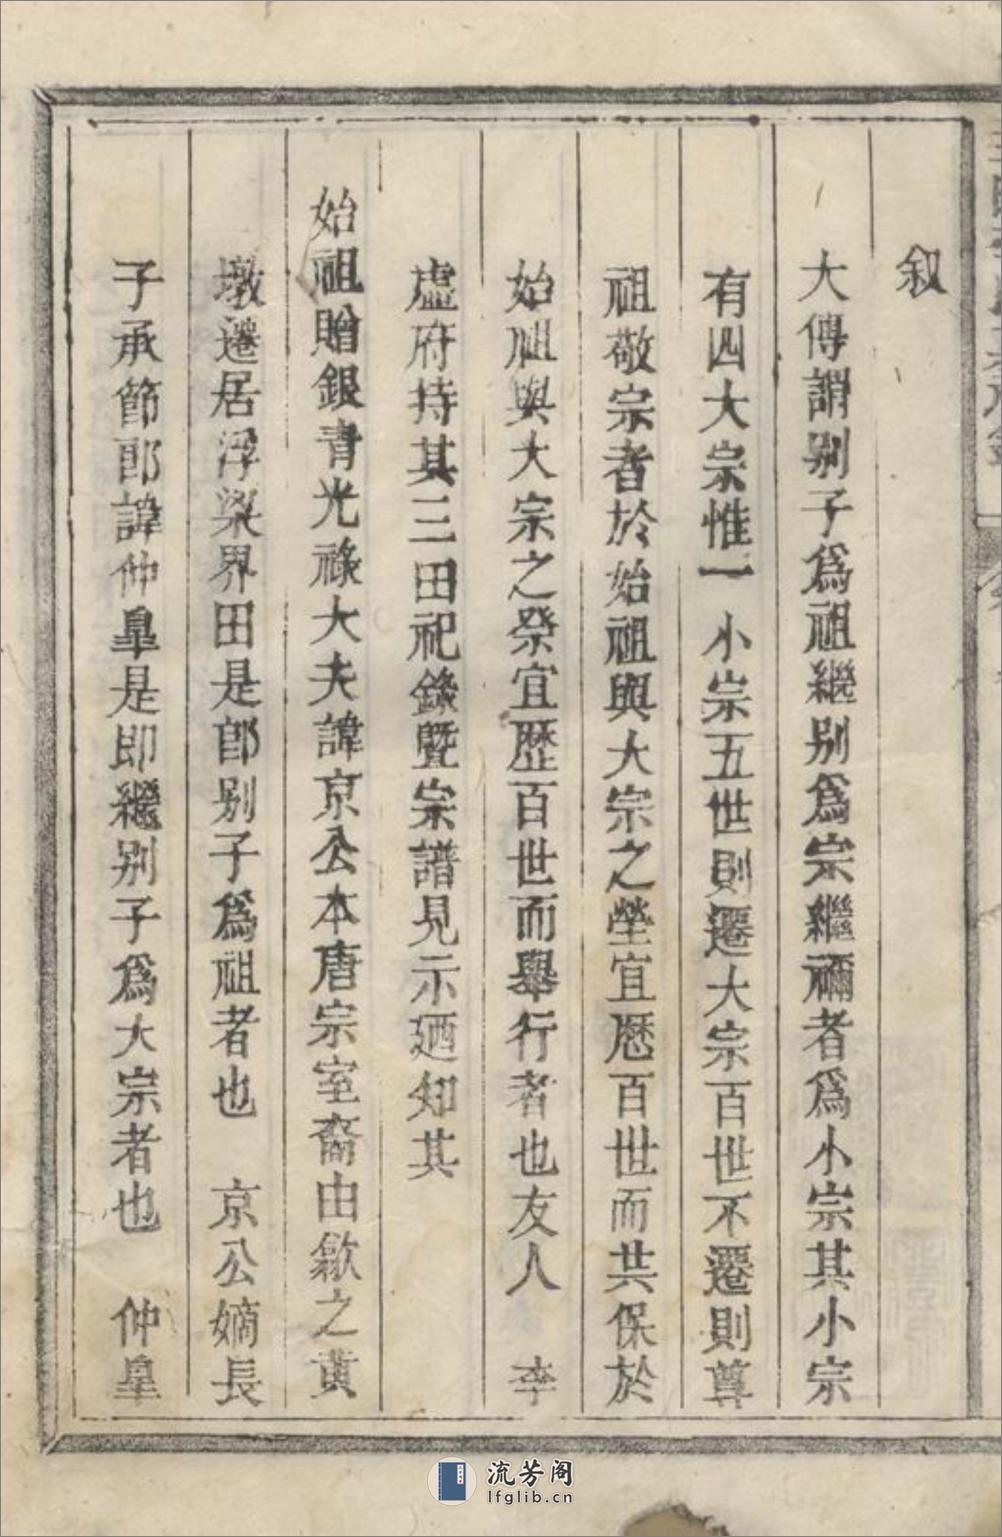 叙
大傳謂别子爲祖繼别爲宗繼禰者爲小宗其小宗
有四大宗惟一小宗五世則遷大宗百世不遷則尊
祖敬宗者於始祖與大宗之塋宜歷百世而共保於
始祖與大宗之祭宜歷百世而舉行者也友人　李
虛府持其三田祀錄暨宗譜見示廼知其
始祖贈銀青光祿大夫諱京公本唐宗室裔由歙之黄
墩遷居浮梁界田是卽别子爲祖者也　京公嫡長
子承節郎諱仲皐是即繼别子爲大宗者也　仲皐
流芳阁
lfglib.cn